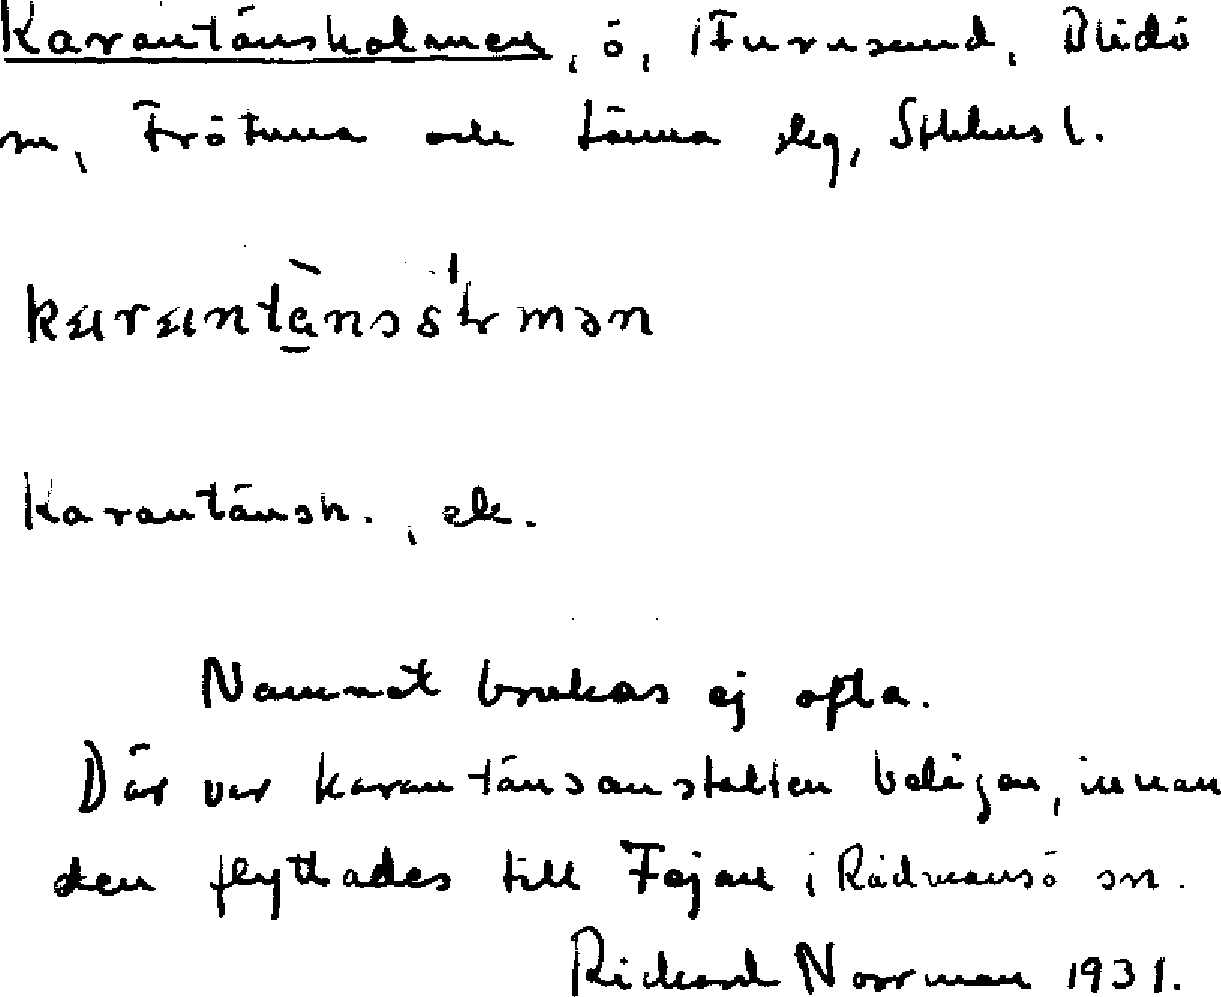 Karantänsholmen, ö, i Furusund, Blidö
sn, Frötuna och Länna skg, Sthlms l.
Karantänsh., ek.
Namnet brukas ej ofta.
Där var karantänsanstalten belägen, innan
den flyttades till Fejan i Rådmansö sn.
Rickard Norrman 1931.